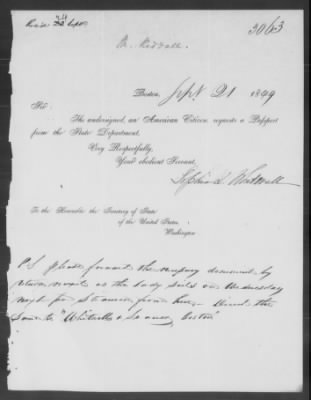 3063
Boston, Sept. 21 1849
Sir
The undersigned, an American Citizen, requests a Passport
from the State Department.
Very Respectfully,
Your obedient Servant,
To the Honorable the Secretary of State
of the United States,
Washington
P.S. please forward the necessary document by
return mail as the lady sails on Wednesday
next per Steamer from here - direct the
same to "Whitwell & Boston"